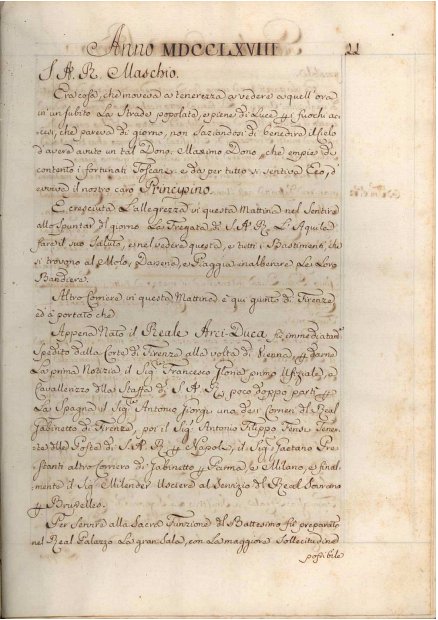 Anno MDCCLXVIII 22
S. A. R. Maschio.
Era cosa, che moveva a tenerezza a vedere a quell'ora
in un subito la Strada popolata, e piena di Luce
cesi, che pareva di giorno, non saziandosi di benedire il Cielo
d'avere avuto un tal Dono. Maximo Dono, che empie di
contento i fortunati Toscani, e da per tutto si sentiva Eco, d'
evviva il nostro caro Principino.
E cresciuta L'allegrezza vi questa Mattina nel Sentire
allo Spuntar del giorno La Fregata di S. A. R. L'Aquila
fare il suo Saluto, e nel vedere questa, e tutti i Bastimenti, che
si trovono al Molo, Darsena, e Piaggia inalberare Le Loro
Bandiere.
Altro Corriere in questa Mattina è qui giunto di Firenze,
ed à portato che
Appena Nato il Reale Arci-Duca, fù immediatam.
Spedito dalla Corte di Firenze alla volta di Vienna darne
La prima Notizia il Sig. Francesco primo Ufiziale, e
Cavallerizzo della Staffa di S. A. R., poco doppo partì
La Spagna il Sig. Antonio Giorgi uno de i Corrieri del Real
Gabinetto di Firenze, poi il Sig. Antonio Filippo Tenente
delle Poste di S. A. R. Napoli, il Sig. Gaetano Pre-
stanti altro Corriero di Gabinetto Parma, e Milano, e final-
mente il Sig. Milender Usciere al Servizio del Real Sovrano
Bruxelles.
Per Servire alla Sacra Funzione del Battesimo fù preparato
nel Real Palazzo La gran Sala, con La maggiore Sollecitudine
possibile